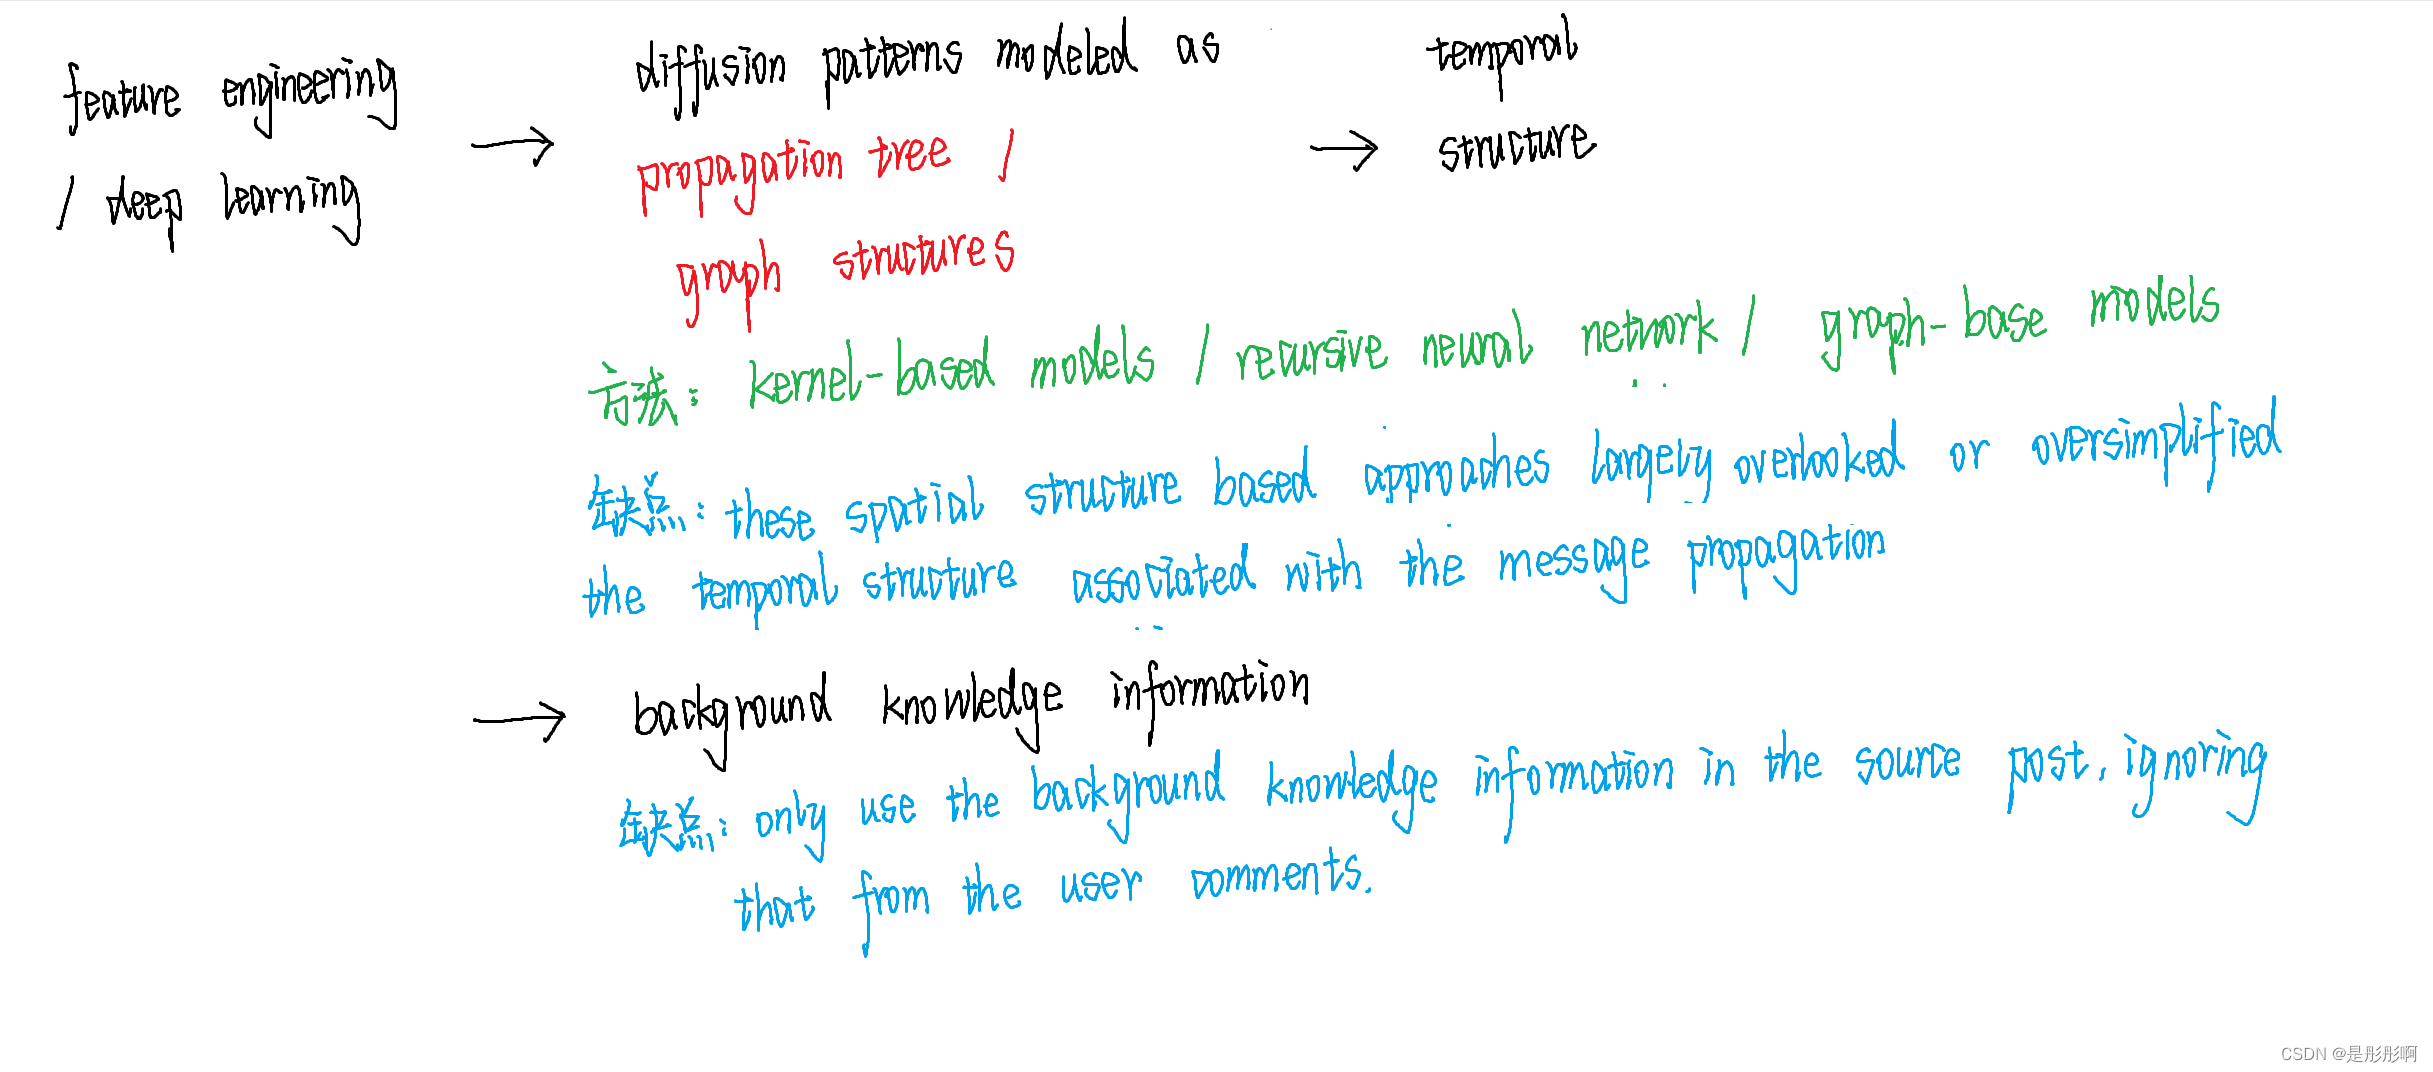 feature engineering
/ deep learning
diffusion patterns modeled as
propagation tree /
graph structures
temporal
structure
方法: kernel-based models / recursive neural network / graph-base models
缺点: these spatial structure based approaches largely overlooked or oversimplified
the temporal structure associated with the message propagation
background knowledge information
缺点: only use the background knowledge information in the source post, ignoring
that from the user comments.
CSDN @是彤彤啊